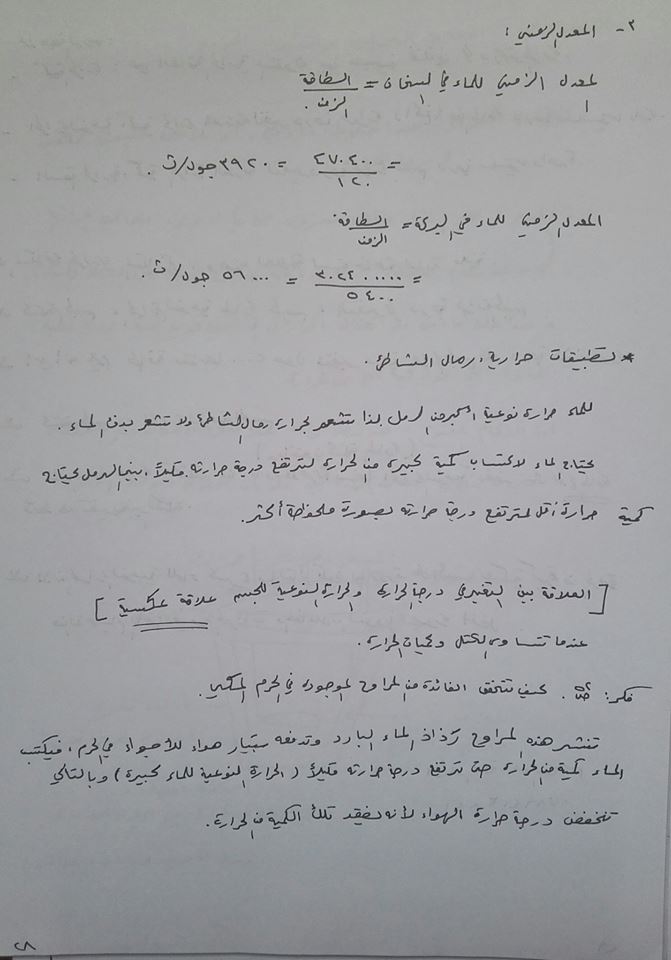 ٣- المعدل الزمني :
المعدل الزمني للماء في السخان = الطاقة / الزمن .
= ٤٧٠٤٠٠ / ١٢٠ = ٣٩٢٠ جول/ث .
المعدل الزمني للماء في البركة = الطاقة / الزمن
= ٣٠٢٤٠٠٠٠٠ / ٥٤٠٠ = ٥٦٠٠٠ جول/ث .
* تطبيقات حرارية : رمال الشاطئ .
للماء حرارة نوعية أكبر من الرمل لذا تشعر بحرارة رمال الشاطئ ولا تشعر بدفء الماء .
يحتاج الماء لاكتساب كمية كبيرة من الحرارة لترتفع درجة حرارته قليلاً ، بينما الرمل يحتاج
كمية حرارة أقل لترتفع درجة حرارته بصورة ملحوظة أكثر .
[ العلاقة بين التغير في درجة الحرارة والحرارة النوعية للجسم علاقة عكسية ]
عندما تتساوى الكتل وكميات الحرارة .
فكر : كيف تتحقق الفائدة من المراوح الموجودة في الحرم المكي .
تنشر هذه المراوح رذاذ الماء البارد وتدفعه بتيار هواء للأجواء في الحرم ، فيكتسب
الماء كمية من الحرارة حتى ترتفع درجة حرارته قليلاً ( الحرارة النوعية للماء كبيرة ) وبالتالي
تنخفض درجة حرارة الهواء لأنه يفقد تلك الكمية من الحرارة .
٢٨